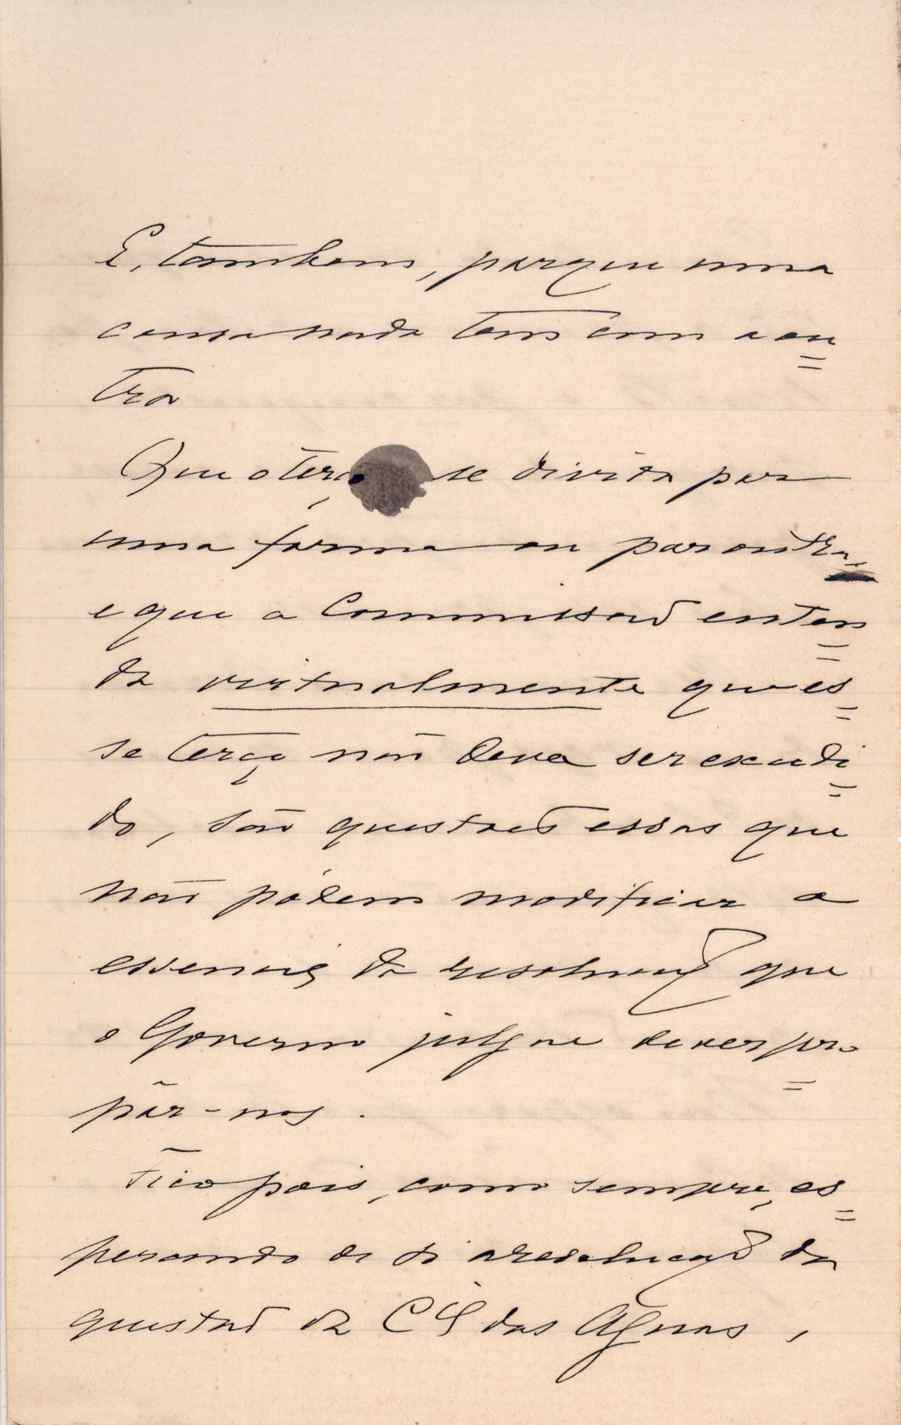 E, tambem, porque uma
cousa nada tem com a ou=
tra
Que o terço se divida por
uma forma ou por outra,
e que a Commissão enten=
da virtualmente que es=
se terço não deva ser excedi=
do, são questões essas que
não pódem modificar a
essencia da resolução que
o Governo julgue dever pro=
pôr-nos.
Fico pois, como sempre, es=
perando de ti a resolução da
questão da Cia das Aguas,